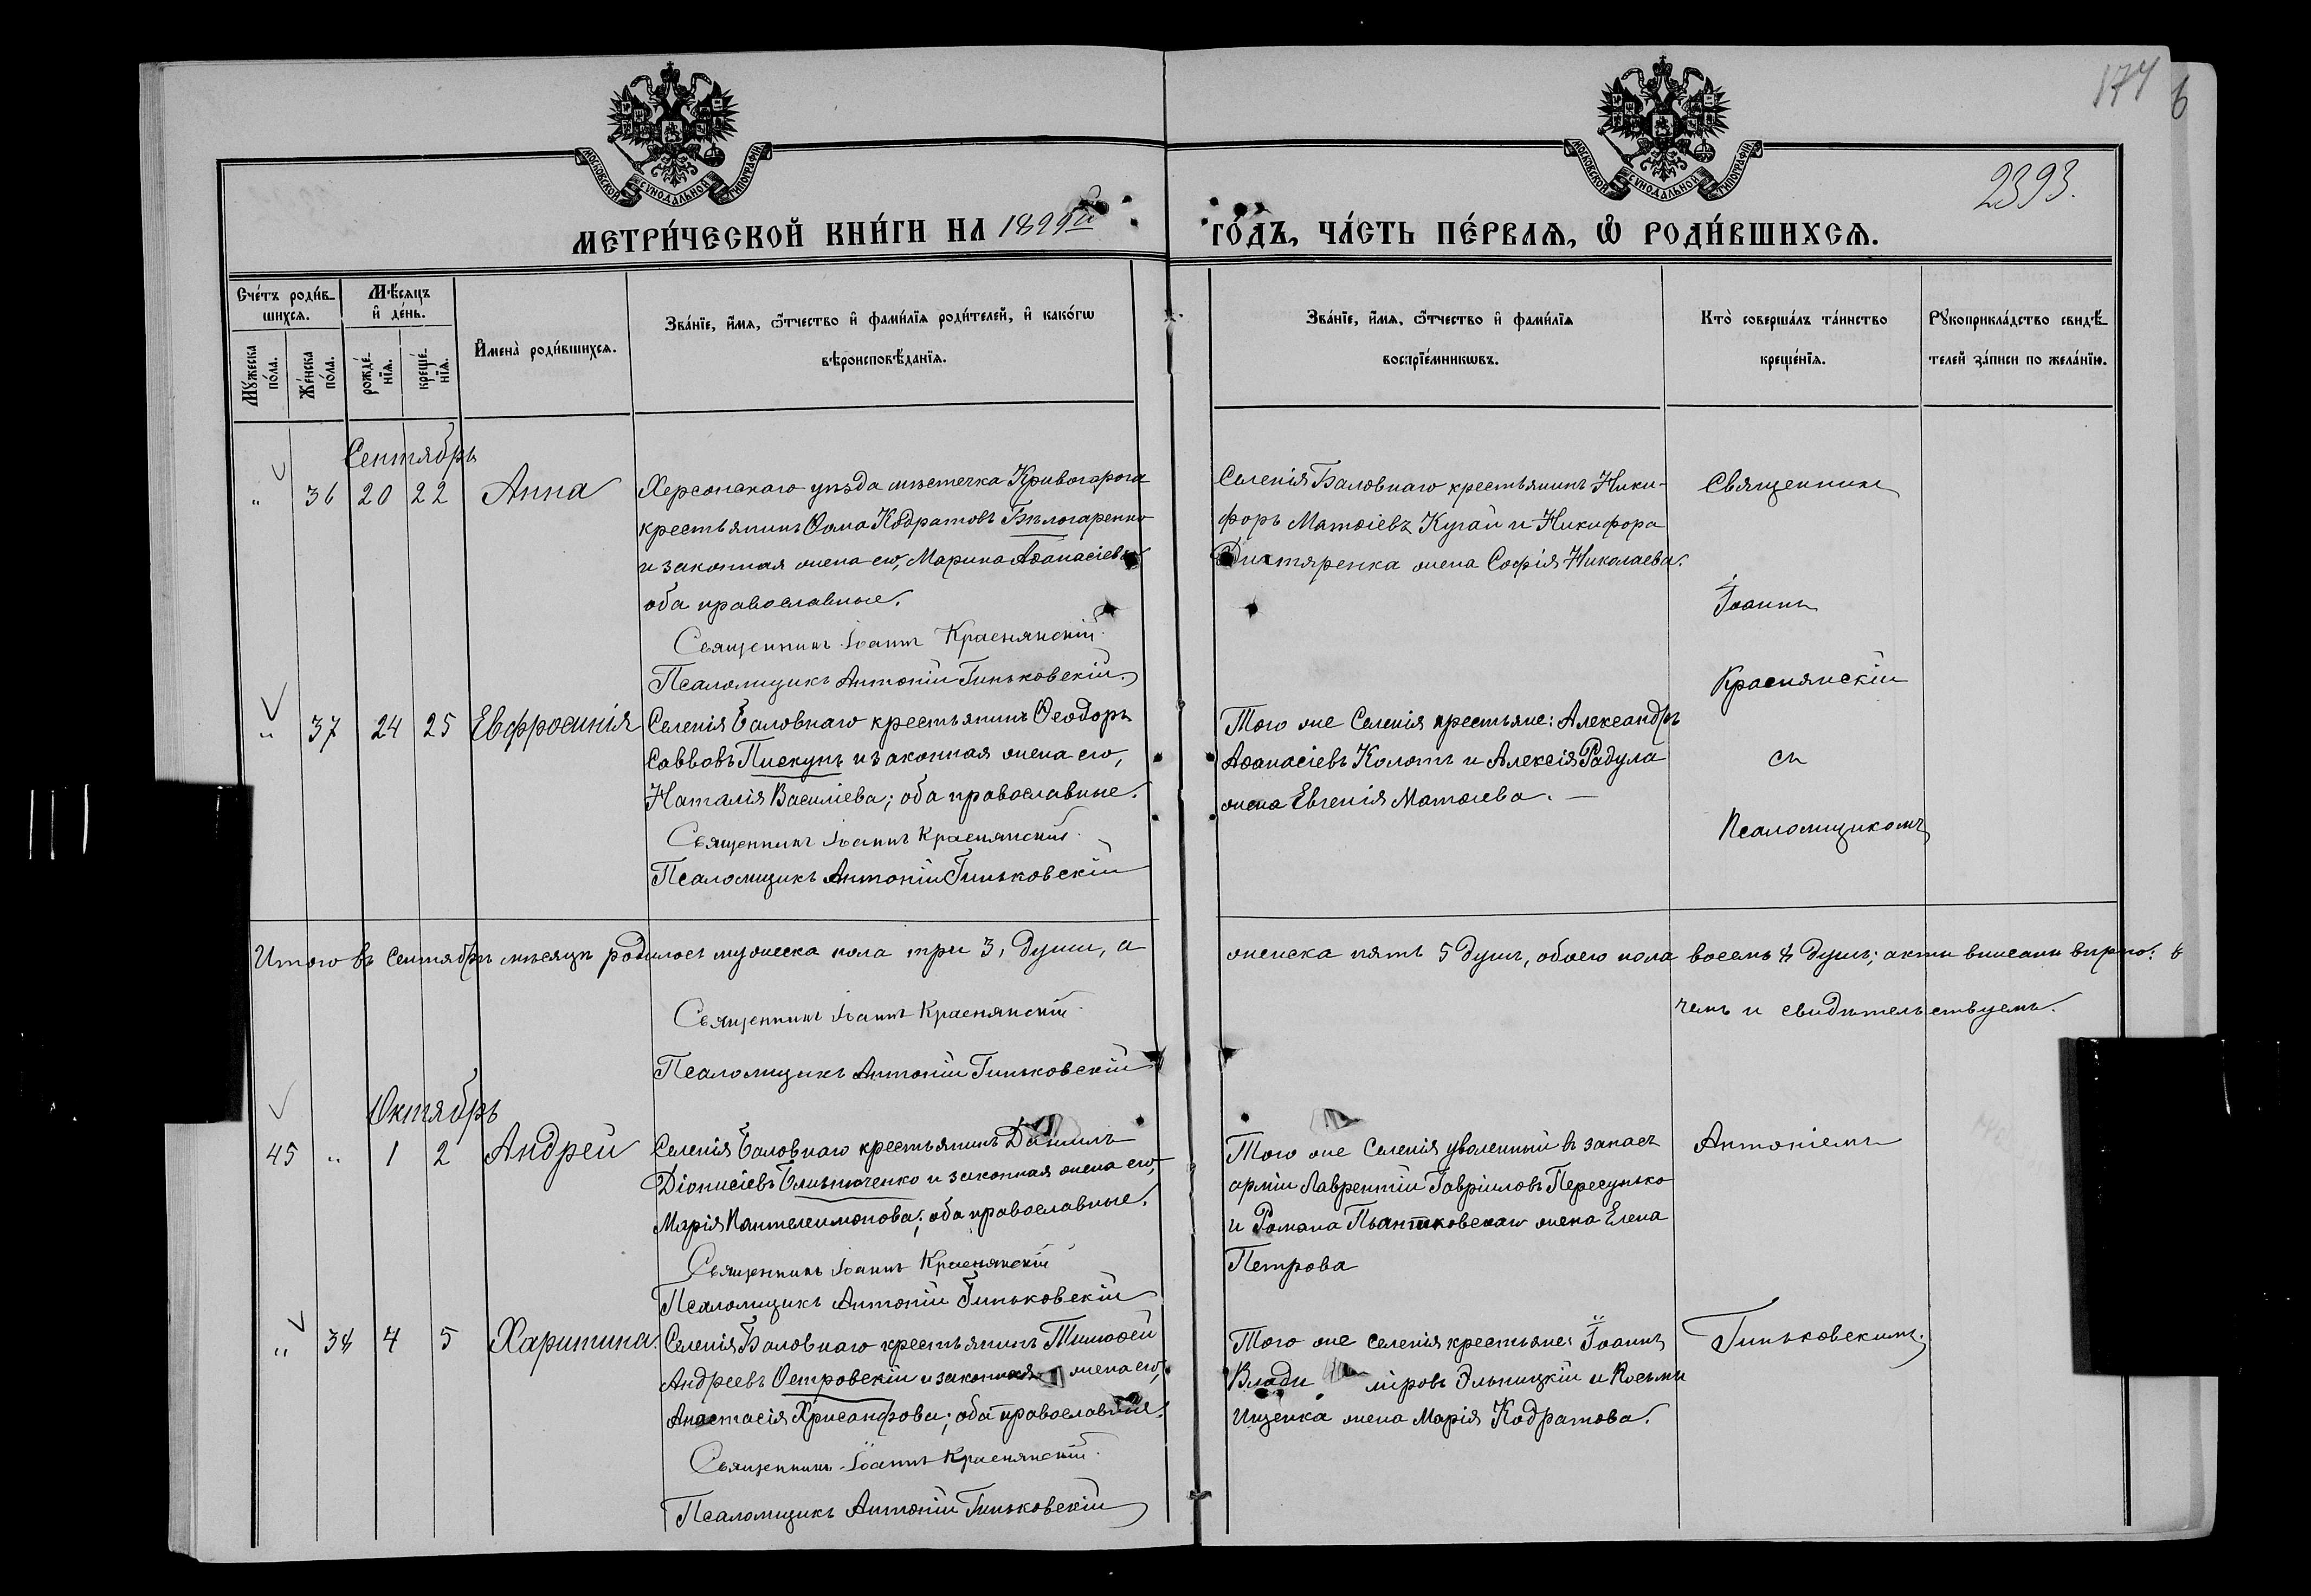 174 6
2393.
МОСКОВСКОЙ СѴНОДАЛЬНОЙ ТИПОГРАФІИ
МОСКОВСКОЙ СѴНОДАЛЬНОЙ ТИПОГРАФІИ
МЕТРИ́ЧЕСКОЙ КНИ́ГИ НА 1899й
ГО́ДЪ, ЧА́СТЬ ПЕ́РВАѦ, Ѡ҆ РОДИ́ВШИХСѦ.
Сче́тъ роди́в-
шихсѧ.
Мꙋ́жеска по́ла.
Же́нска по́ла.
Мѣ́сѧцъ
и҆ де́нь.
рожде́-нїѧ.
креще́-нїѧ.
И҆мена̀ роди́вшихсѧ.
Зва́нїе, и҆́мѧ, ѻ҆́тчество и҆ фами́лїѧ роди́телей, и҆ како́гѡ
вѣроисповѣ́данїѧ.
Зва́нїе, и҆́мѧ, ѻ҆́тчество и҆ фами́лїѧ
воспрїе́мникѡвъ.
Кто̀ соверша́лъ та́инство
креще́нїѧ.
Рꙋкоприкла́дство свидѣ́-
телей за́писи по жела́нїю.
Сентябрь
" 36 20 22 Анна
Херсонскаго уѣзда мѣстечка Кривогорога
крестьянинъ Ѳома Кодратовъ Бѣлогаренко
и законная жена его, Марина Аѳанасіева
оба православные.
Священникъ Іоаннъ Краснянскій.
Псаломщикъ Антоній Гиньковскій.
Селенія Баловнаго крестьянинъ Ники-
форъ Матѳіевъ Кугай и Никифора
Дихтяренка жена Софія Николаева.
Священник
Іоаннъ
Краснянскій
" 37 24 25 Евфросинія
Селенія Баловнаго крестьянинъ Ѳеодоръ
Саввовъ Пискунъ и законная жена его,
Наталія Василіева; оба православные.
Священникъ Іоаннъ Краснянскій.
Псаломщикъ Антоній Гиньковскій
Того же Селенія крестьяне: Александръ
Аѳанасіевъ Колотъ и Алексія Радула
жена Евгенія Матѳіева. —
съ
Псаломщикомъ
Итого въ Сентябрѣ мѣсяцѣ родилось мужеска пола три 3, души, а
женска пять 5 душъ, обоего пола восемь 8 душъ; акты вписаны вѣрно: в
чемъ и свидѣтельствуемъ.
Священникъ Іоаннъ Краснянскій.
Псаломщикъ Антоній Гиньковскій
Октябрь
45 " 1 2 Андрей
Селенія Баловнаго крестьянинъ Даніилъ
Діонисіевъ Близнюченко и законная жена его,
Марія Пантелеимонова; оба православные.
Священникъ Іоаннъ Краснянскій
Псаломщикъ Антоній Гиньковскій
Того же Селенія уволенный въ запасъ
арміи Лаврентій Гавріиловъ Пересунько
и Романа Пьянтковскаго жена Елена
Петрова
Антоніемъ
" 38 4 5 Харитина.
Селенія Баловнаго крестьянинъ Тимоѳей
Андреевъ Островскій и законная жена его,
Анастасія Хрисанфова; оба православные.
Священникъ Іоаннъ Краснянскій.
Псаломщикъ Антоній Гиньковскій
Того же селенія крестьяне: Іоаннъ
Влади міровъ Эльницкій и Косьмы
Ищенка жена Марія Кодратова.
Гиньковскимъ.